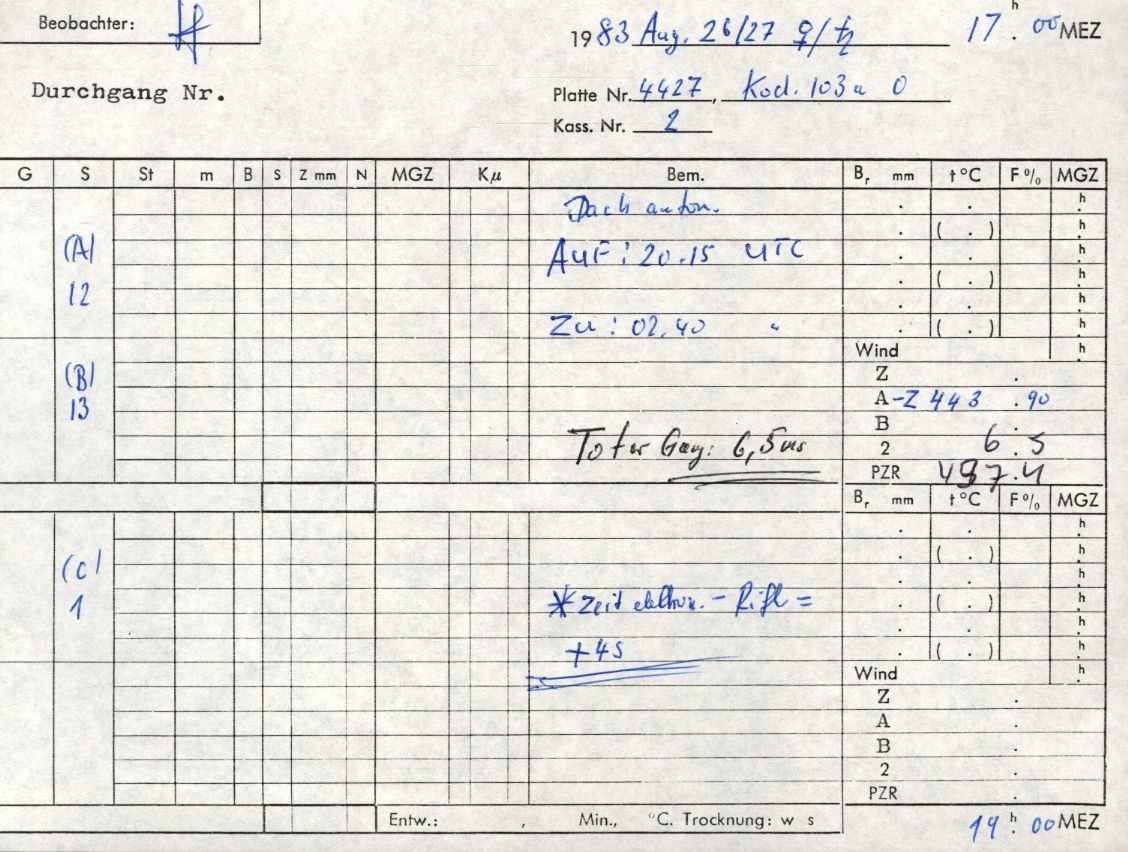 Beobachter:
1983 Aug. 26/27 ♀/♄ 17 h . 00 MEZ
Durchgang Nr.
Platte Nr. 4427, Kod. 103a O
Kass. Nr. 2
G S St m B S Z mm N MGZ Kµ Bem. Br mm t °C F % MGZ
Dach autom. . . h
. ( . ) h
(A) Auf: 20.15 UTC . . h
12 . ( . ) h
. . h
Zu: 02.40 " . ( . ) h
Wind h
(B) Z .
13 A -Z 443 .90
B .
Toter Gang: 6,5 ms 2 6.5
PZR 437.4
Br mm t °C F % MGZ
. . h
(C) . ( . ) h
. . h
1 * Zeit elektron. - Rifl = . ( . ) h
. . h
+4s . ( . ) h
Wind h
Z .
A .
B .
2 .
PZR .
Entw.: , Min., °C. Trocknung: w s
19 h . 00 MEZ